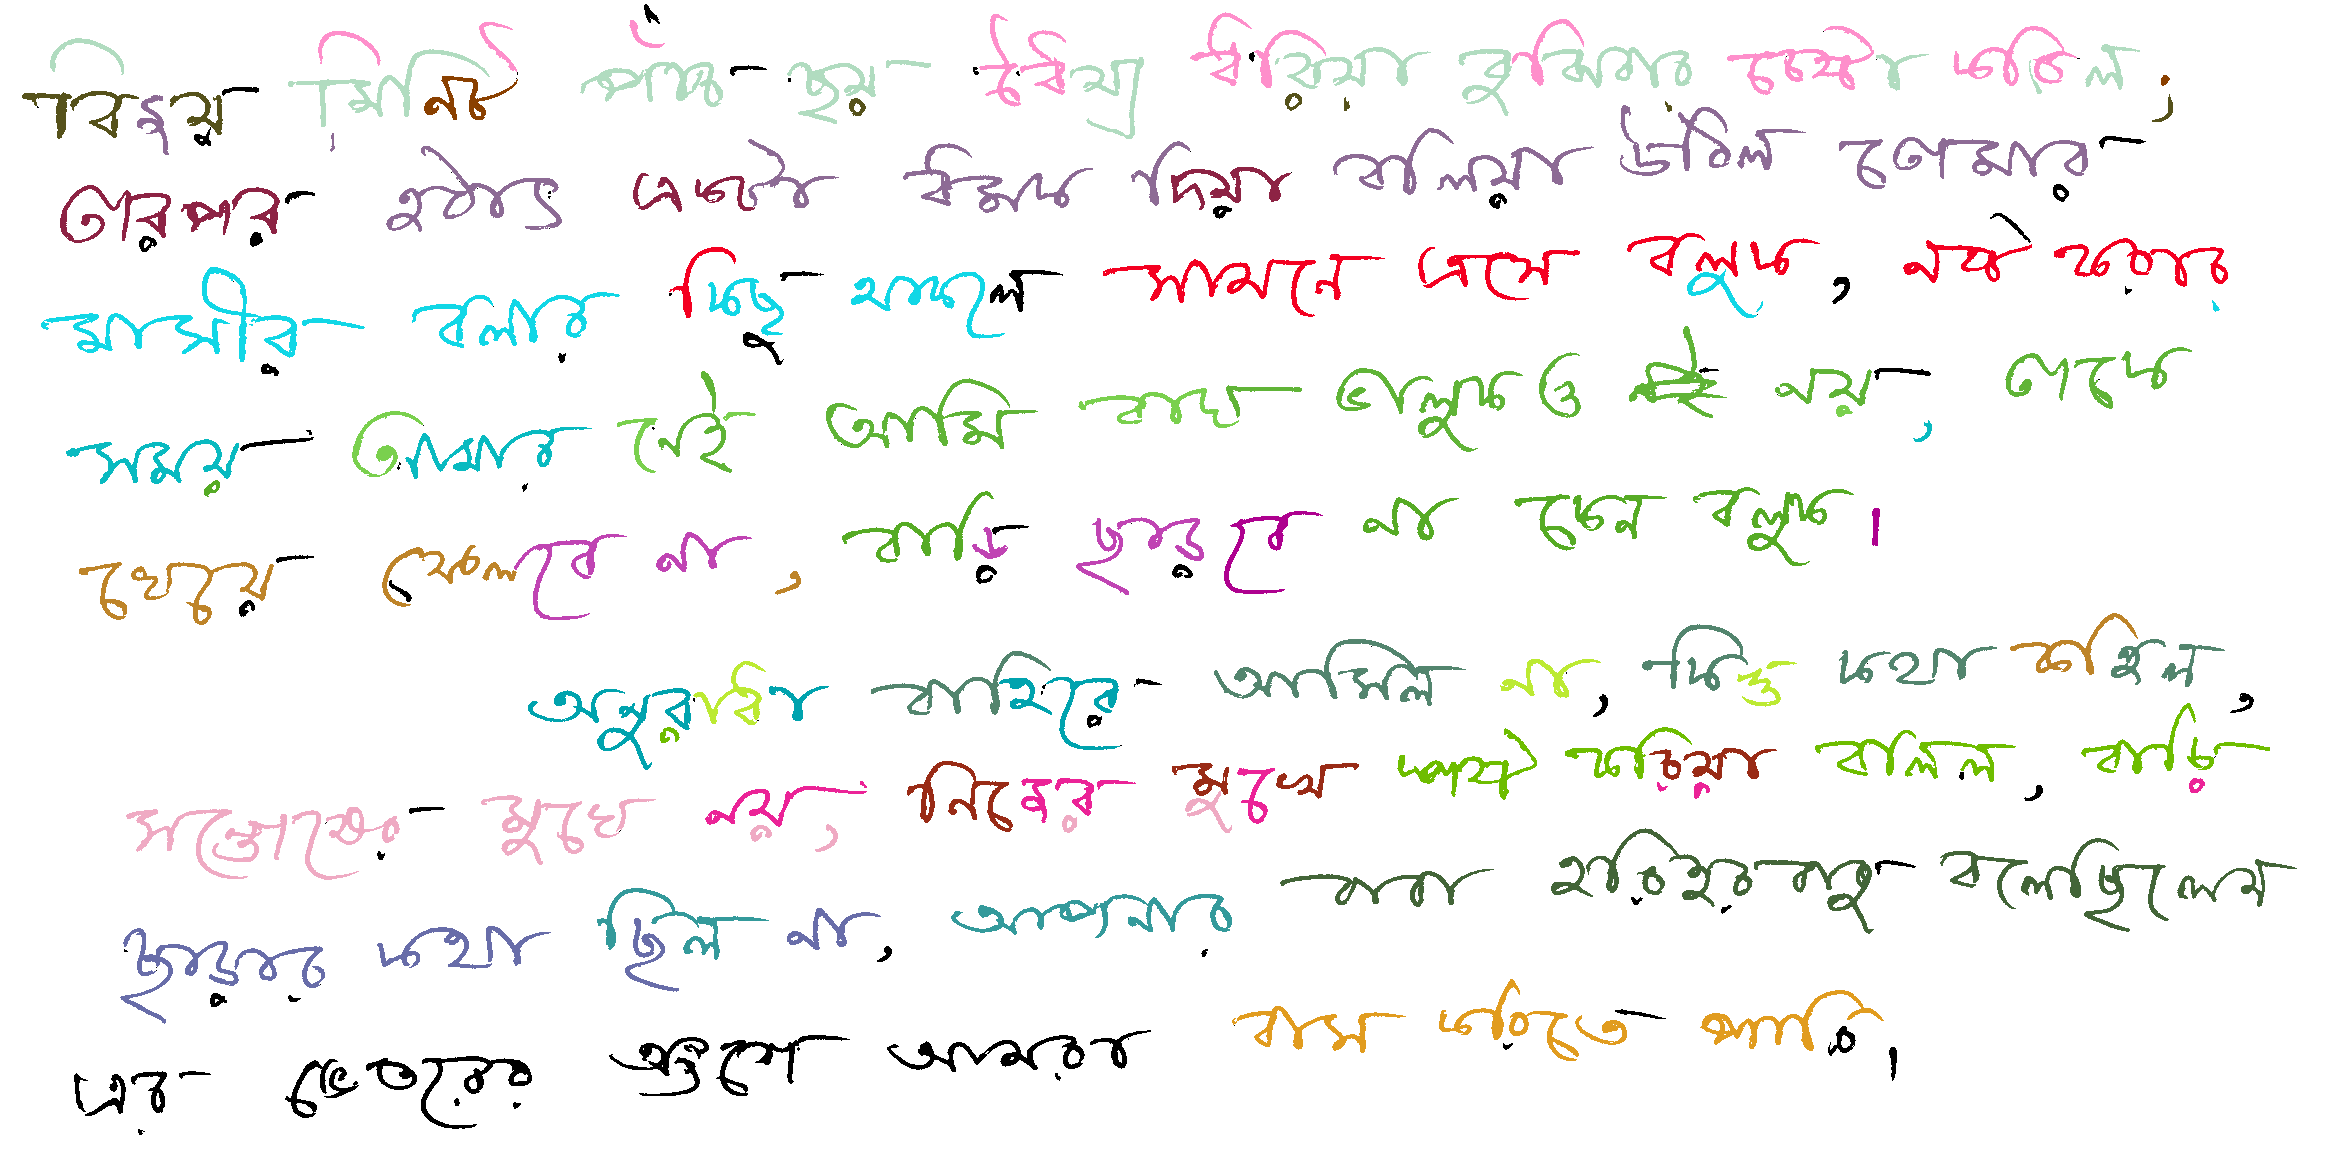 বিজয় মিনিট পাঁচ ছয় ধৈর্য্য ধরিয়া বুঝিবার চেষ্টা করিল;
তারপর হঠাৎ একটা ধমক দিয়া বলিয়া উঠিল তোমার
মাসীর বলার কিছু থাকলে সামনে এসে বলুক, নষ্ট করার
সময় আমার নেই আমি বাঘ ভালুকও নয়, তাকে
খেয়ে ফেলবে না, বাড়ি ছাড়বে না কেন বলুক।
অনুরাধা বাহিরে আসিল না, কিন্তু কথা কহিল,
সন্তোষের মুখে নয়, নিজের মুখে স্পষ্ট করিয়া বলিল, বাড়ি
ছাড়ার কথা ছিল না, আপনার বাবা হরিহরবাবু বলেছিলেন
এর ভেতরের অংশে আমরা বাস করিতে পারি।